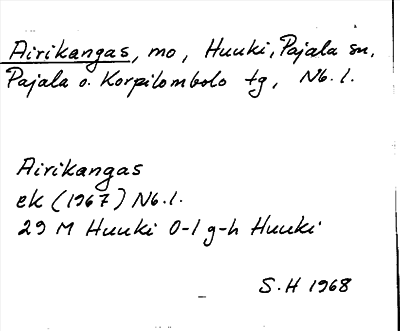 Airikangas, mo, Huuki, Pajala sn,
Pajala o. Korpilombolo tg, Nb. l.
Airikangas
ek (1967) Nb. l.
29 M Huuki 0-1 g-h Huuki
S.H 1968